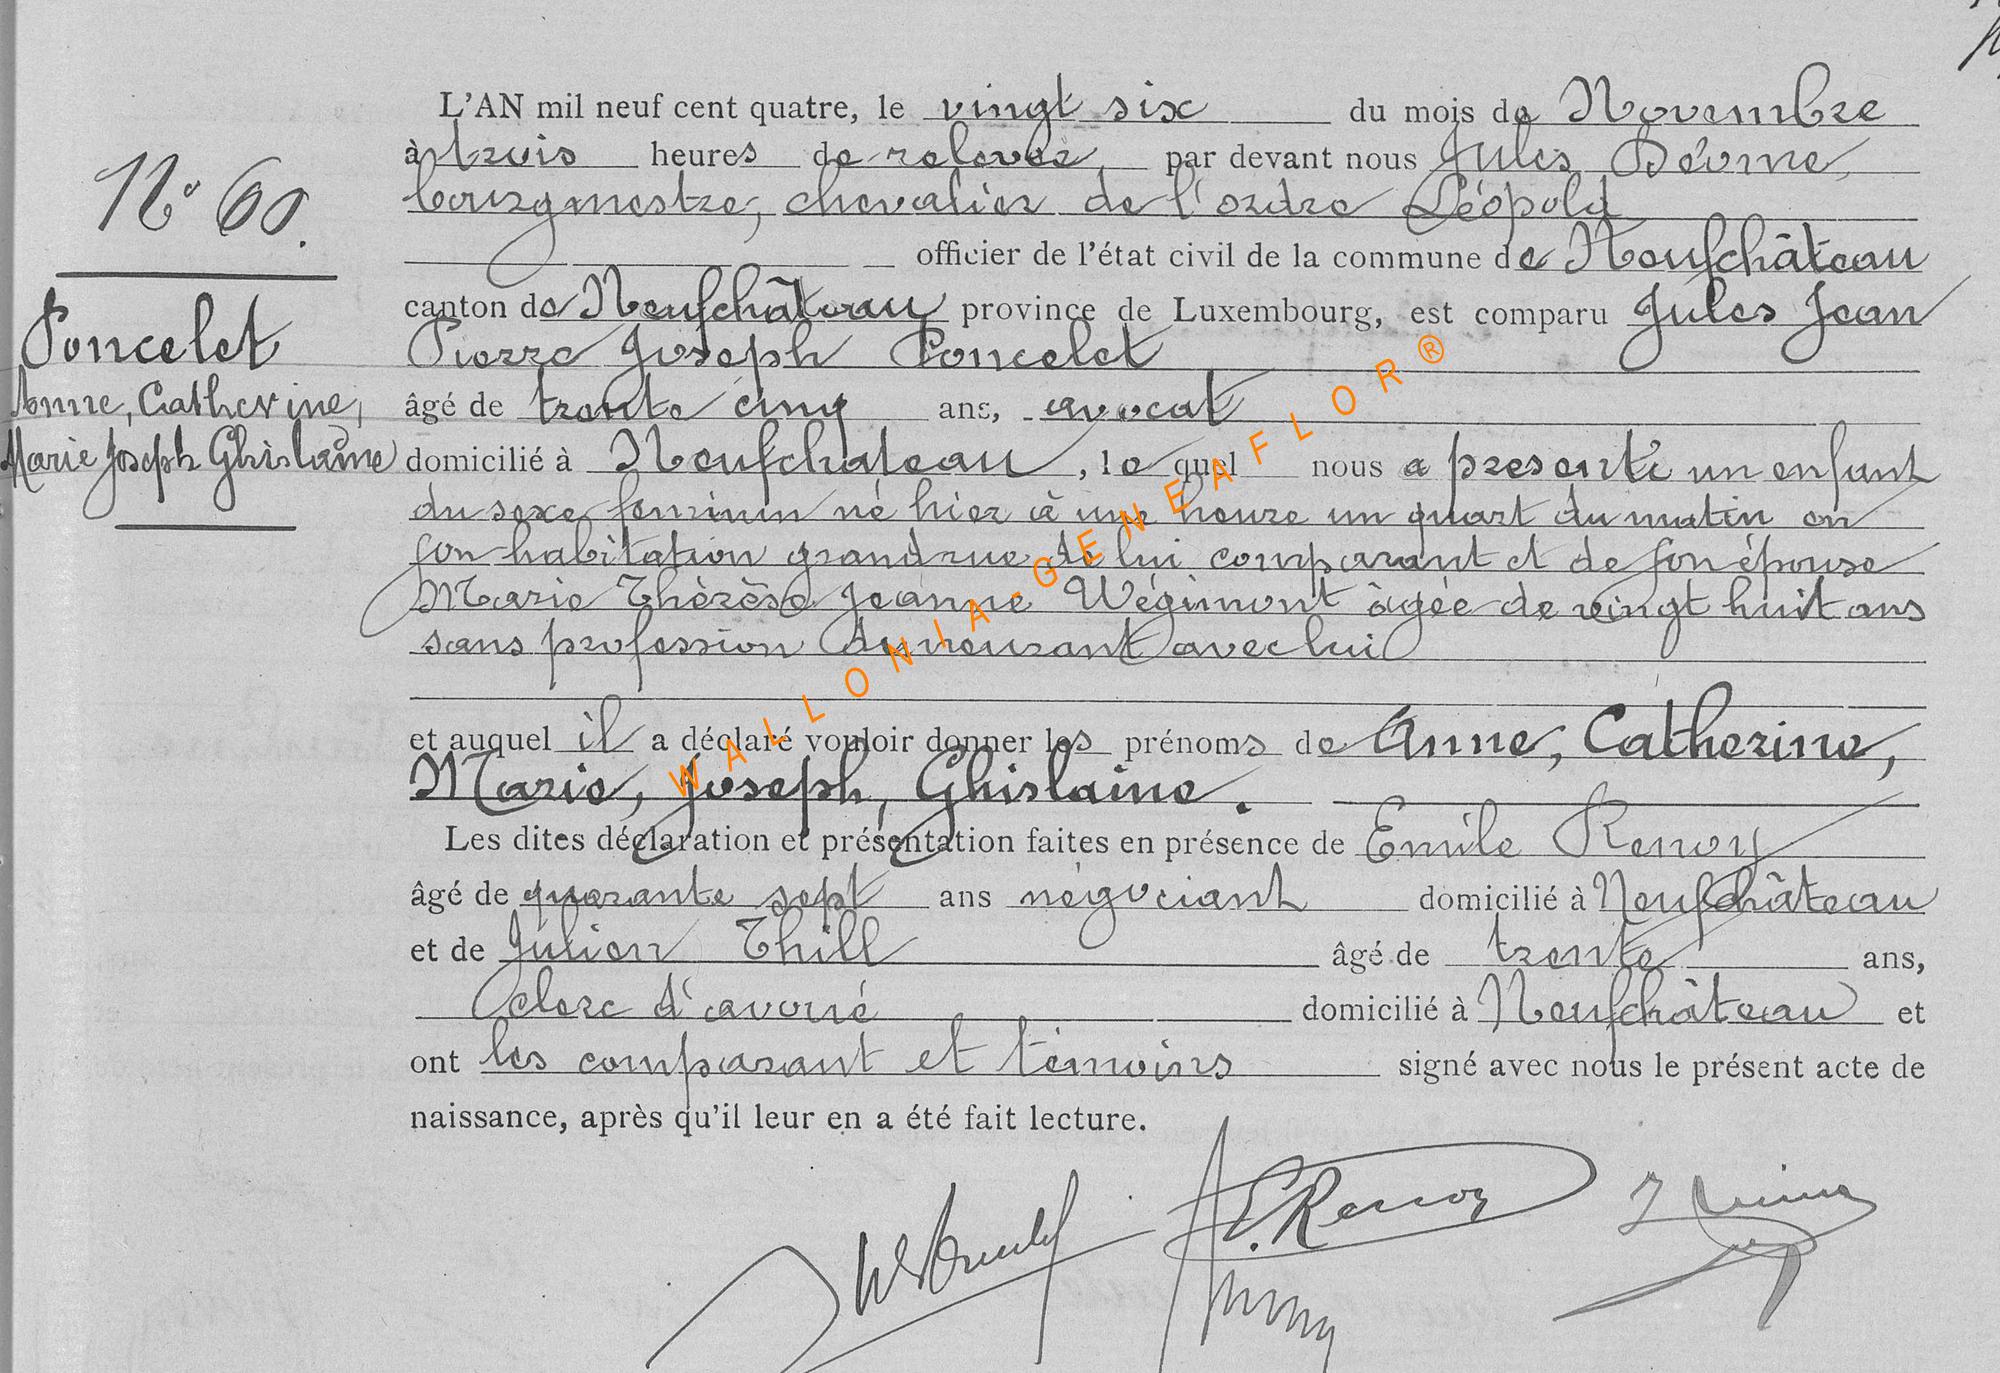 L'AN mil neuf cent quatre, le vingt six du mois de Novembre
à trois heures de relevée, par devant nous Jules
bourgmestre, chevalier de l'ordre Léopold
officier de l'état civil de la commune de Neufchâteau
N° 60.
canton de Neufchâteau province de Luxembourg, est comparu Jules Jean
Pierre Joseph Poncelet
Poncelet
Anne, Catherine,
Marie Joseph Ghislaine
âgé de trente cinq ans, avocat
domicilié à Neufchateau, le quel nous a présenté un enfant
du sexe feminin né hier à une heure un quart du matin en
son habitation grandrue de lui comparant et de son épouse
Marie Thérèse Jeanne Wégimont âgée de vingt huit ans
sans profession demeurant avec lui
et auquel il a déclaré vouloir donner les prénoms de Anne, Catherine,
Marie, Joseph, Ghislaine.
Les dites déclaration et présentation faites en présence de Emile Renoy
âgé de quarante sept ans négociant domicilié à Neufchâteau
et de Julien Thill âgé de trente ans,
clerc d'avoué domicilié à Neufchâteau et
ont les comparant et témoins signé avec nous le présent acte de
naissance, après qu'il leur en a été fait lecture.
E. Renoy
WALLONIA-GENEAFLOR®